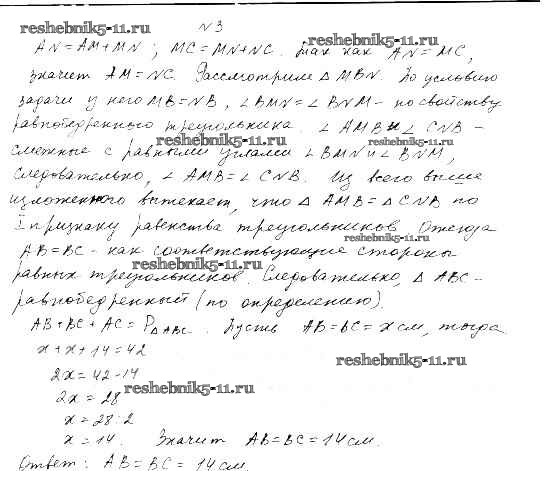 reshebnik5-11.ru
№3
AN=AM+MN; MC=MN+NC. Так как AN=MC,
значит AM=NC. Рассмотрим △ MBN. По условию
задачи у него MB=NB, ∠BMN=∠BNM – по свойству
равнобедренного треугольника. ∠AMB и ∠CNB –
reshebnik5-11.ru
смежные с равными углами ∠BMN и ∠BNM,
следовательно, ∠AMB=∠CNB. Из всего выше
изложенного вытекает, что △AMB=△CNB по
I признаку равенства треугольников. Отсюда
reshebnik5-11.ru
AB=BC как соответствующие стороны
reshebnik5-11.ru
равных треугольников. Следовательно, △ABC –
равнобедренный (по определению).
AB+BC+AC=P△ABC. Пусть AB=BC=x см, тогда
x+x+14=42
reshebnik5-11.ru
2x=42-14
reshebnik5-11.ru
2x=28
x=28:2
x=14. Значит AB=BC=14 см.
Ответ: AB=BC=14 см.